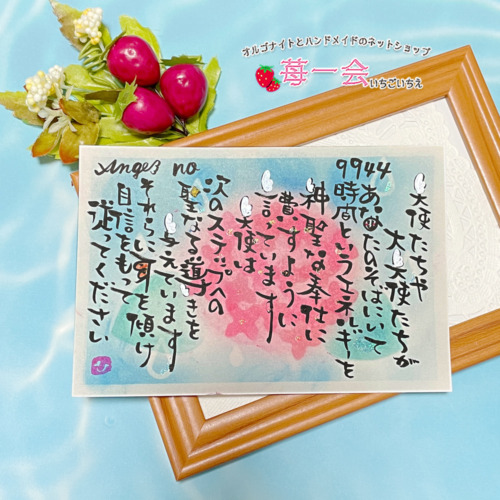 オルゴナイトとハンドメイドのネットショップ
苺一会
いちごいちえ
Angel no 9944
天使たちや
大天使たちが
あなたのそばにいて
時間というエネルギーを
神聖な奉仕に
費すように
言っています
天使は
次のステップへの
聖なる導きを
与えています
それらに耳を傾け
自信をもって
従ってください